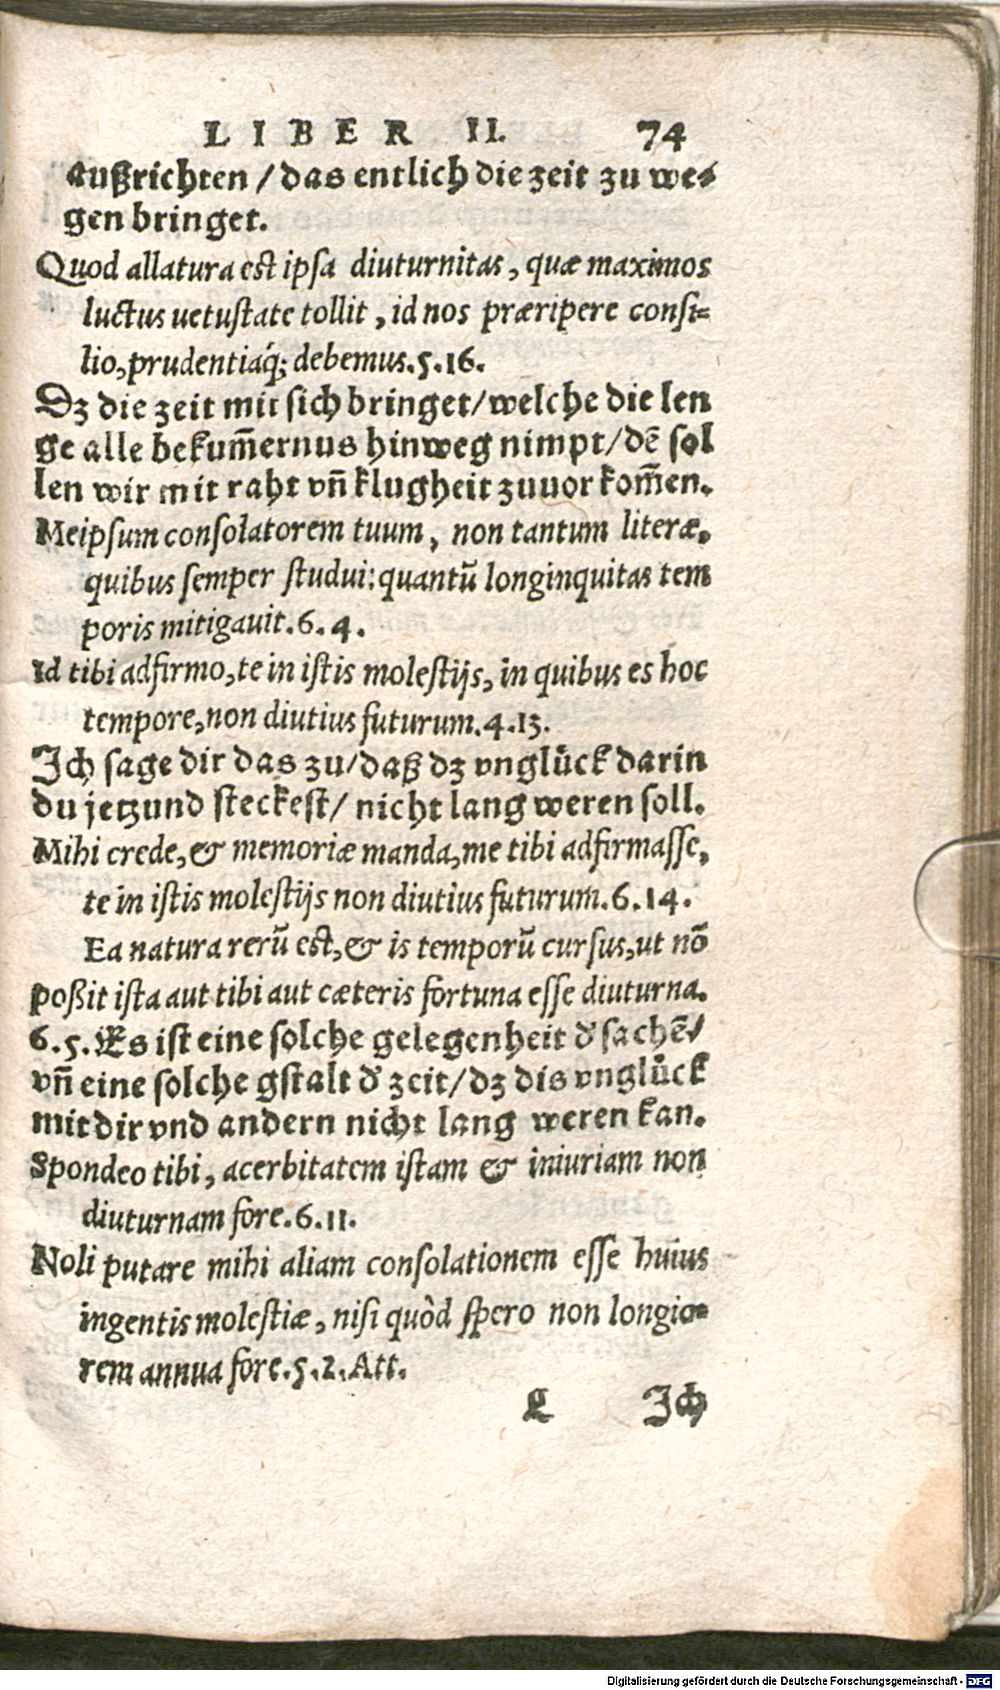 LIBER II. 74
außrichten / das entlich die zeit zu we-
gen bringet.
Quod allatura est ipsa diuturnitas, quæ maximos
luctus uetustate tollit, id nos præripere consi-
lio, prudentiaq́; debemus. 5. 16.
Dz die zeit mit sich bringet / welche die len
ge alle bekum̃ernus hinweg nimpt / dẽ sol
len wir mit raht vñ klugheit zuuor kom̃en.
Meipsum consolatorem tuum, non tantum literæ,
quibus semper studui: quantũ longinquitas tem
poris mitigauit. 6. 4.
Id tibi adfirmo, te in istis molestijs, in quibus es hoc
tempore, non diutius futurum. 4. 13.
Ich sage dir das zu / daß dz vnglůck darin
du jetzund steckest / nicht lang weren soll.
Mihi crede, & memoriæ manda, me tibi adfirmasse,
te in istis molestijs non diutius futurum. 6. 14.
Ea natura rerũ est, & is temporũ cursus, ut nõ
poßit ista aut tibi aut cæteris fortuna esse diuturna.
6. 5. Es ist eine solche gelegenheit d' sachẽ /
vñ eine solche gstalt d' zeit / dz dis vnglůck
mit dir vnd andern nicht lang weren kan.
Spondeo tibi, acerbitatem istam & iniuriam non
diuturnam fore. 6. 11.
Noli putare mihi aliam consolationem esse huius
ingentis molestiæ, nisi quòd spero non longio-
rem annua fore. 5. 2. Att.
L Ich
Digitalisierung gefördert durch die Deutsche Forschungsgemeinschaft - DFG